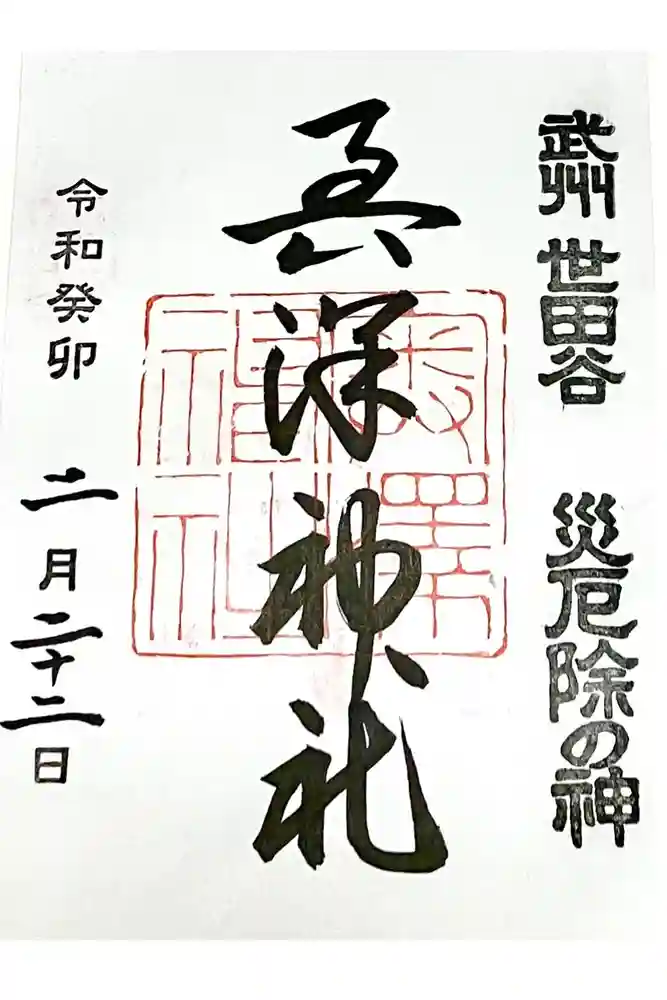 武州 世田谷 災厄除の神
奥澤神社
奥澤神社
令和癸卯 二月二十二日